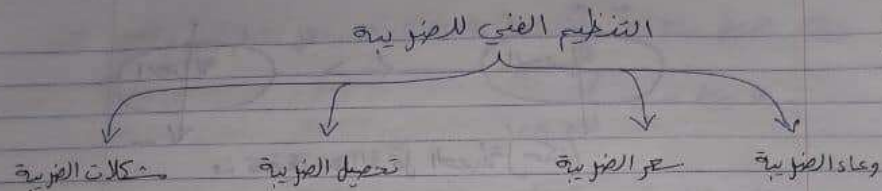 التنظيم الفني للضريبة
وعاء الضريبة سعر الضريبة تحصيل الضريبة مشكلات الضريبة